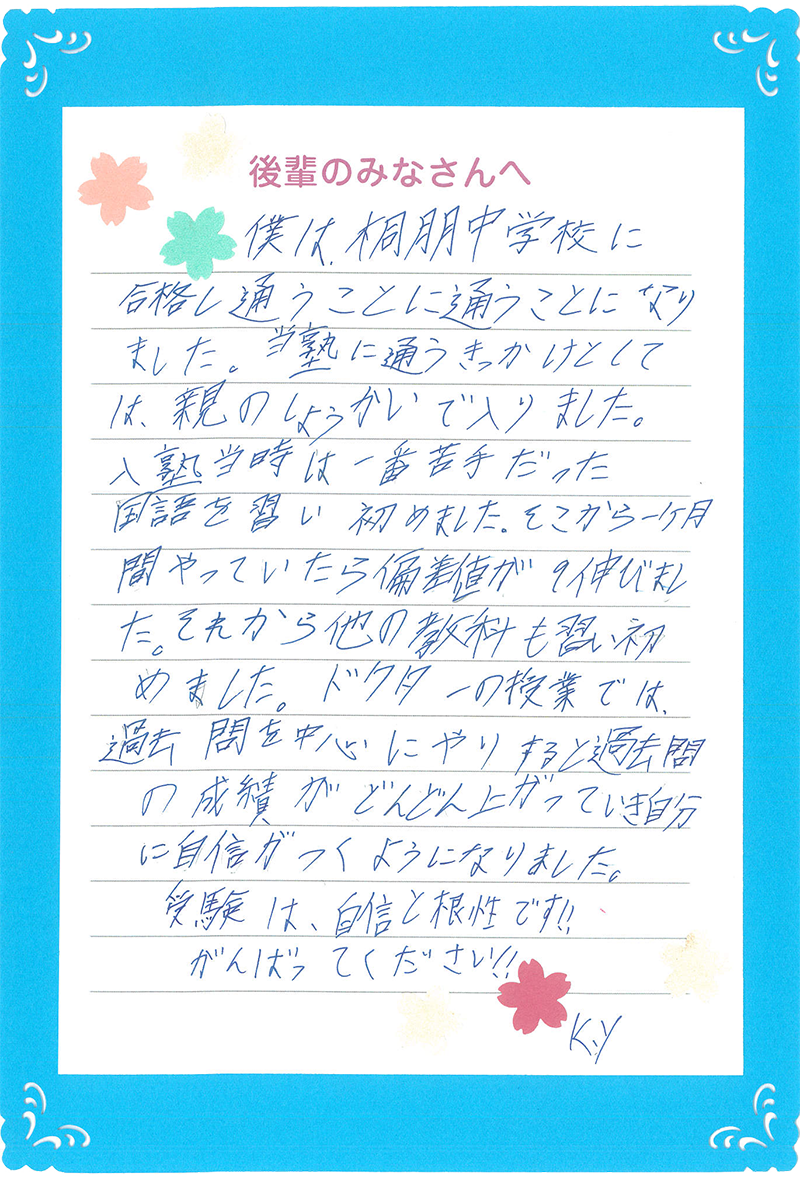 後輩のみなさんへ
僕は、桐朋中学校に
合格し通うことに通うことになり
ました。当塾に通うきっかけとして
は、親のしょうかいで入りました。
入塾当時は一番苦手だった
国語を習い初めました。そこから一ヶ月
間やっていたら偏差値が9伸びまし
た。それから他の教科も習い初
めました。ドクターの授業では、
過去問を中心にやりすると過去問
の成績がどんどん上がっていき自分
に自信がつくようになりました。
受験は、自信と根性です!!
がんばってください!!
K.Y